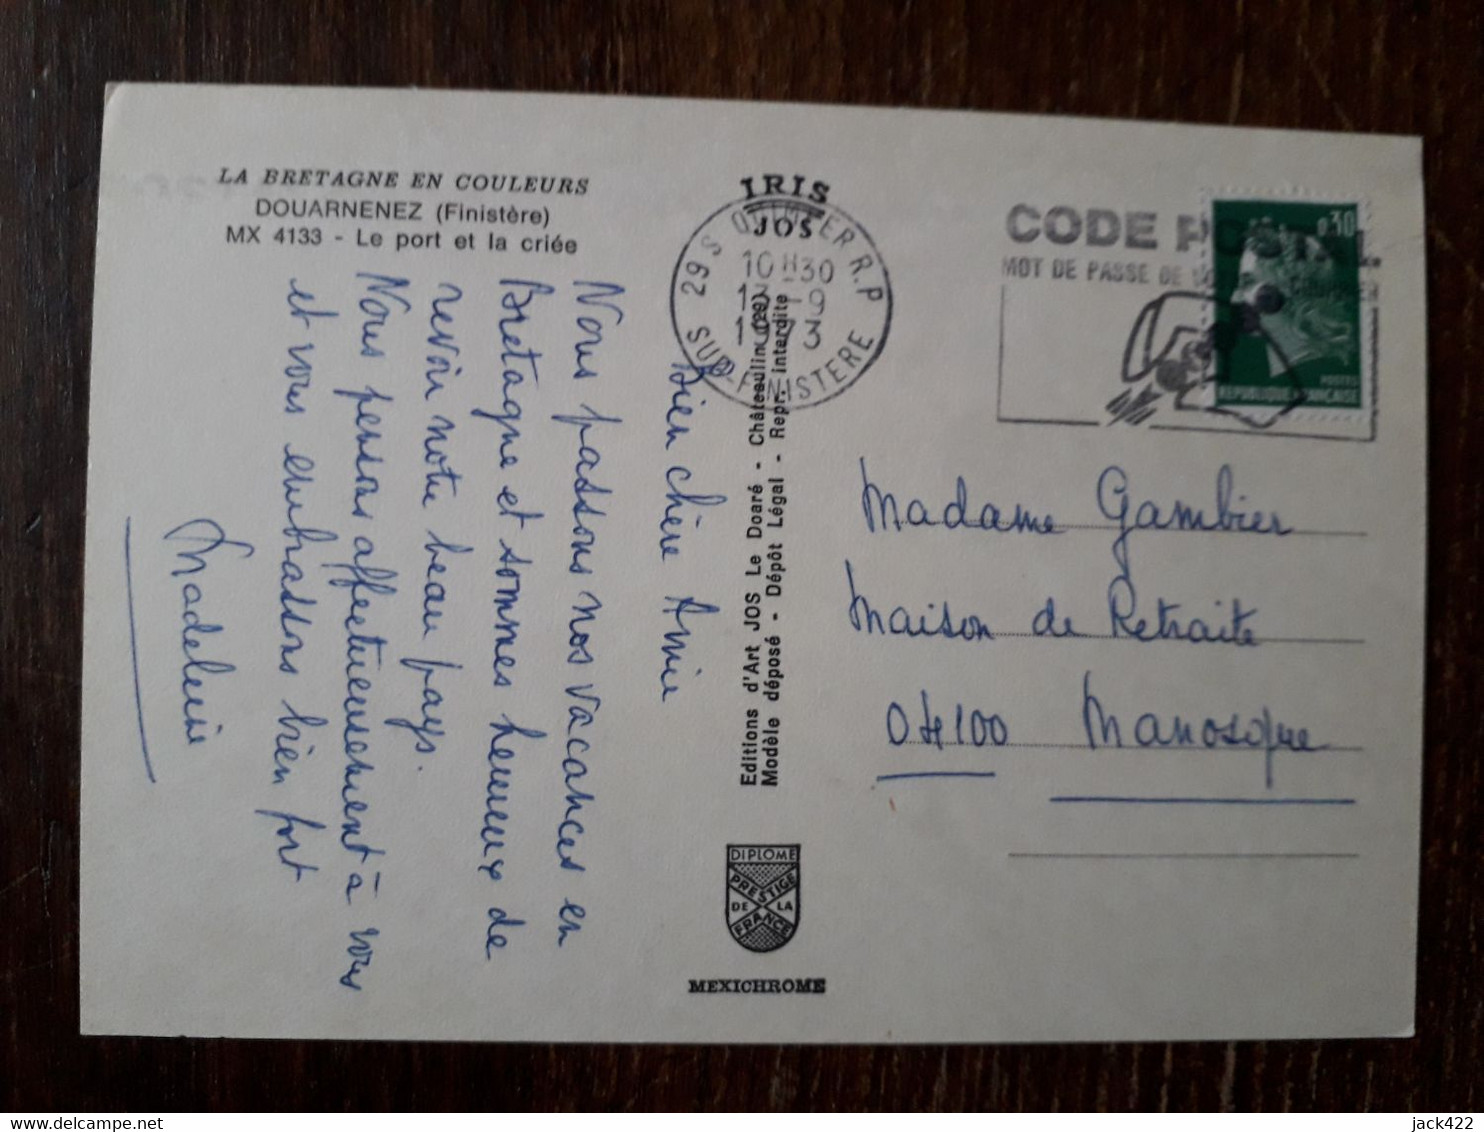 LA BRETAGNE EN COULEURS
DOUARNENEZ (Finistère)
MX 4133 - Le port et la criée
Bien chère Amie
Nous passons nos vacances en
Bretagne et sommes heureux de
revoir notre beau pays.
Nous pensons affectueusement à vous
et vous embrassons bien fort
Madeleine
IRIS
JOS
29 S QUIMPER R.P
SUD-FINISTERE
10 H30
Editions d'Art JOS Le Doaré - Châteaulin (29)
Modèle déposé - Dépôt Légal - Repr. interdite
DIPLOME
PRESTIGE
DE LA
FRANCE
MEXICHROME
CODE POSTAL
MOT DE PASSE DE
0,30
POSTES
REPUBLIQUE FRANÇAISE
Madame Gambier
Maison de Retraite
04100 Manosque
delcampe.net
jack422